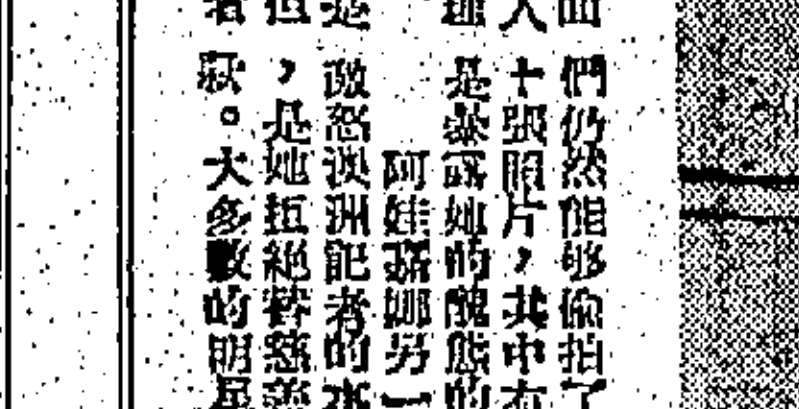 們仍然能够偷拍了
人十張照片,其中有
是泰丽她的醜態的
阿娃嘉娜另一
是激怒澳洲記者的事
但,是她拒絕替慈善
。大多數的明星